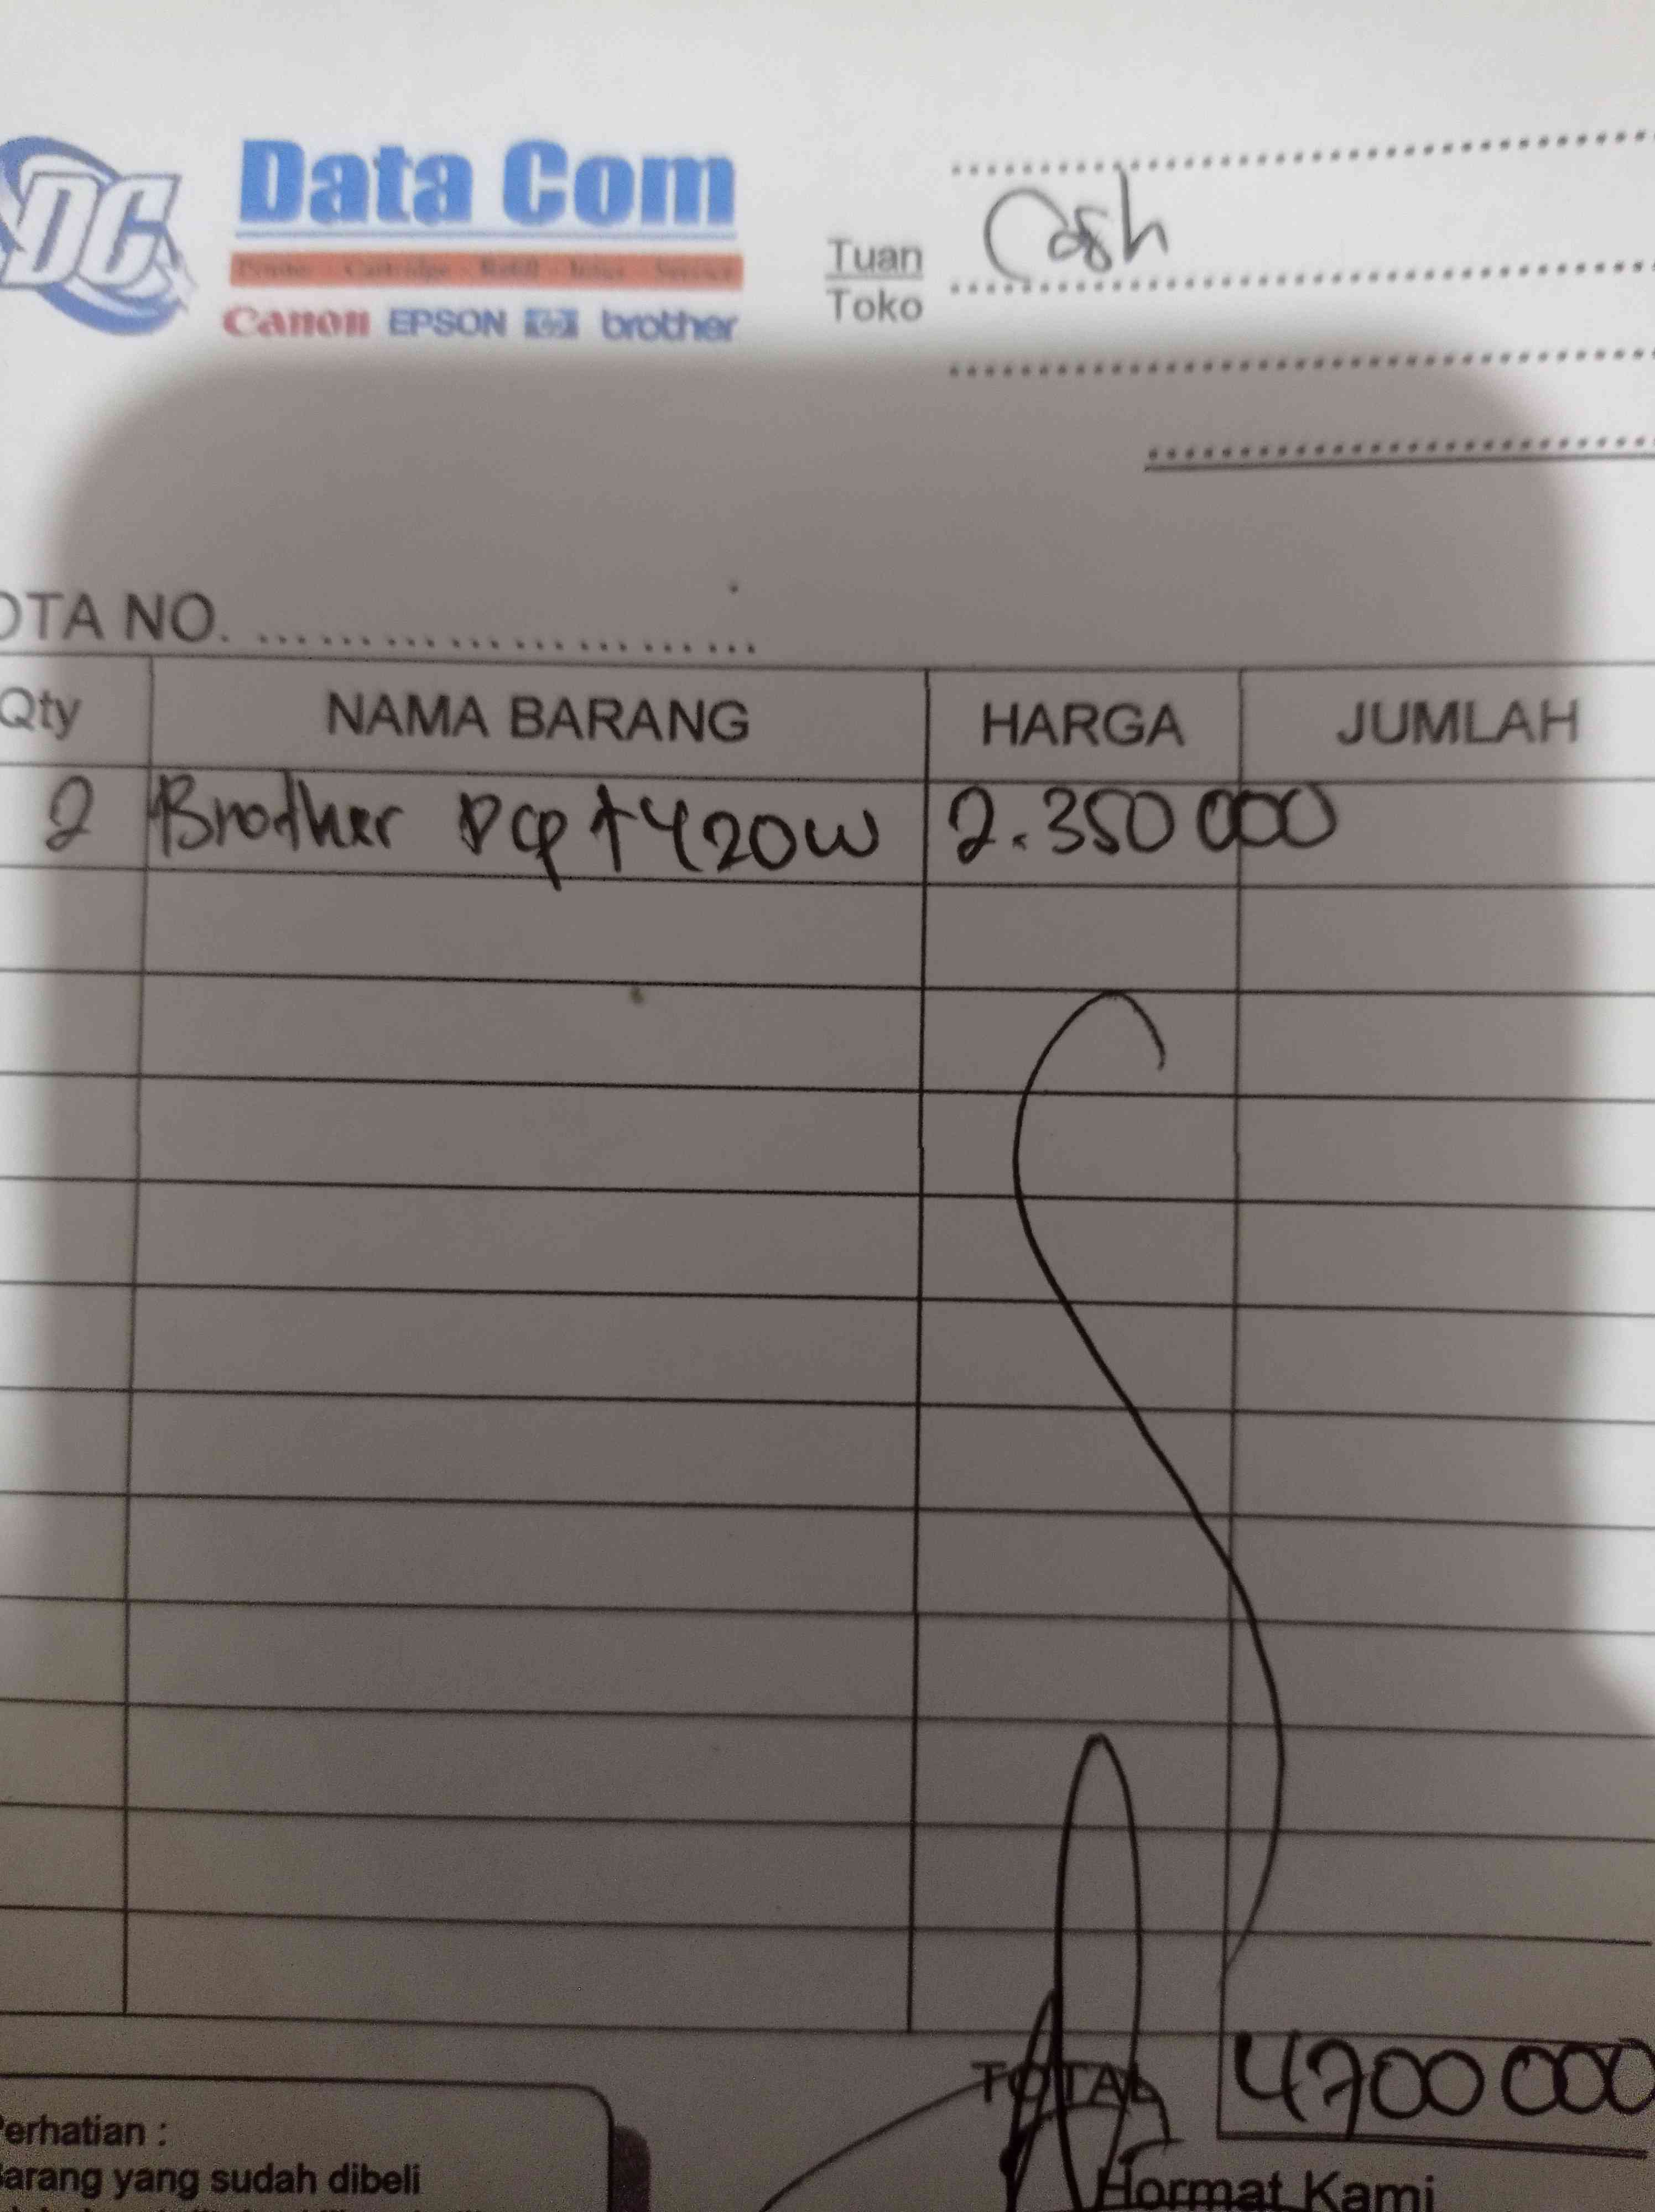 DC
Data Com
Printer - Cartridge - Refill - Infus - Service
Canon EPSON hp brother
Tuan
Toko
Cash
OTA NO.
Qty NAMA BARANG HARGA JUMLAH
2 Brother Dcp t420w 2.350 000
TOTAL 4700 000
Perhatian :
arang yang sudah dibeli
Hormat Kami